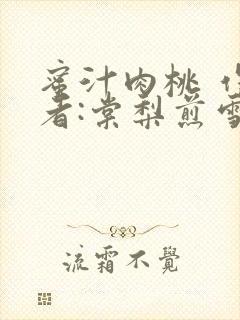 蜜汁肉桃 作
者:棠梨煎雪
流霜不覺